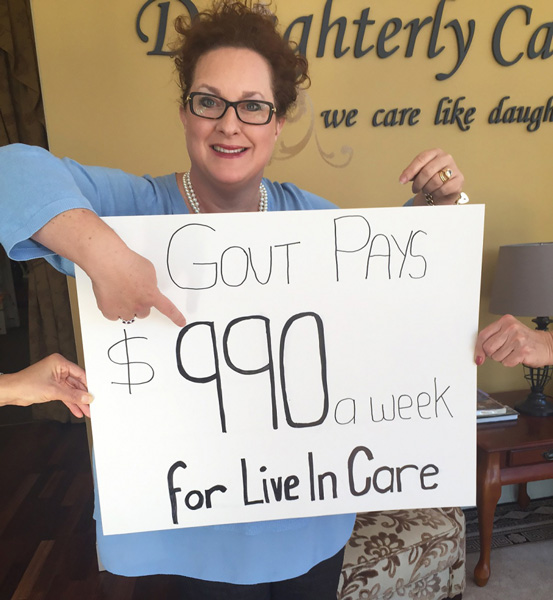 Daughterly Ca
we care like daugh
GOVT PAYS
$990 a week
for Live In Care